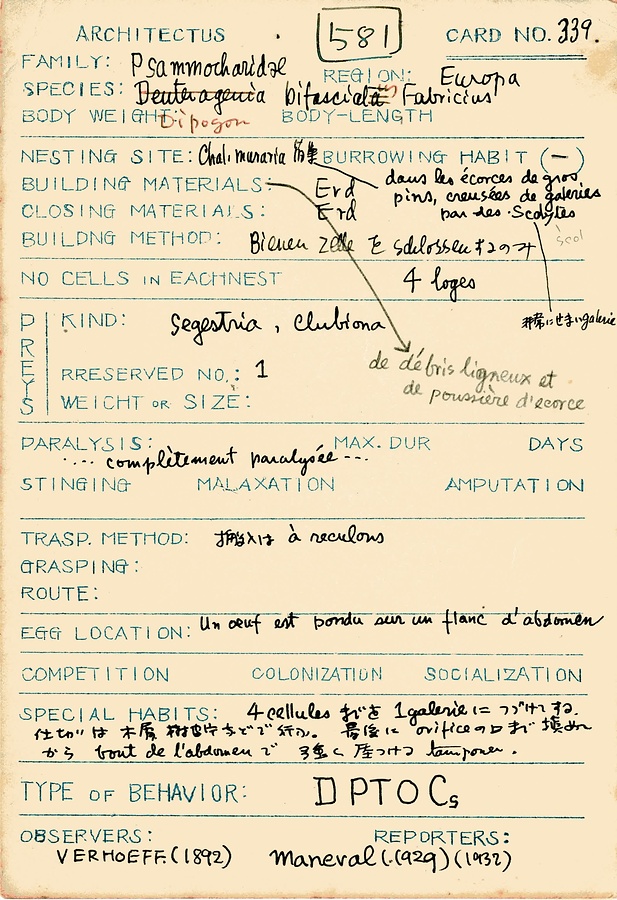 ARCHITECTUS
581
CARD NO. 339.
FAMILY: Psammocharidae
REGION: Europa
SPECIES: Deuteragenia bifasciata us Fabricius
Dipogon
BODY WEIGHT: BODY-LENGTH
NESTING SITE: Chal. muraria BURROWING HABIT (—)
dans les écorces de gros
pins, creusées de galeries
par des Scolytes
scol
BUILDING MATERIALS: Erd
CLOSING MATERIALS: Erd
BUILDNG METHOD: Bienen Zelle を schlossen するのみ
NO CELLS IN EACHNEST 4 loges
非常にせまいgalerie
PREYS
KIND: Segestria, Clubiona
RRESERVED NO.: 1
de débris ligneux et
de poussière d'ecorce
WEIGHT OR SIZE:
PARALYSIS: MAX. DUR DAYS
.... complètement paralysée ---
STINGING MALAXATION AMPUTATION
TRASP. METHOD: 搬入は à reculons
GRASPING:
ROUTE:
EGG LOCATION: Un œuf est pondu sur un flanc d'abdomen
COMPETITION COLONIZATION SOCIALIZATION
SPECIAL HABITS: 4 cellules までを 1 galerie に つづけてする.
仕切りは 木屑 などで行う. 最後に orifice の口まで 填め
から bout de l'abdomen で 強く 圧つける tamponer.
TYPE OF BEHAVIOR: DPTOCs
OBSERVERS: REPORTERS:
VERHOEFF. (1892) Maneval (1929) (1932)